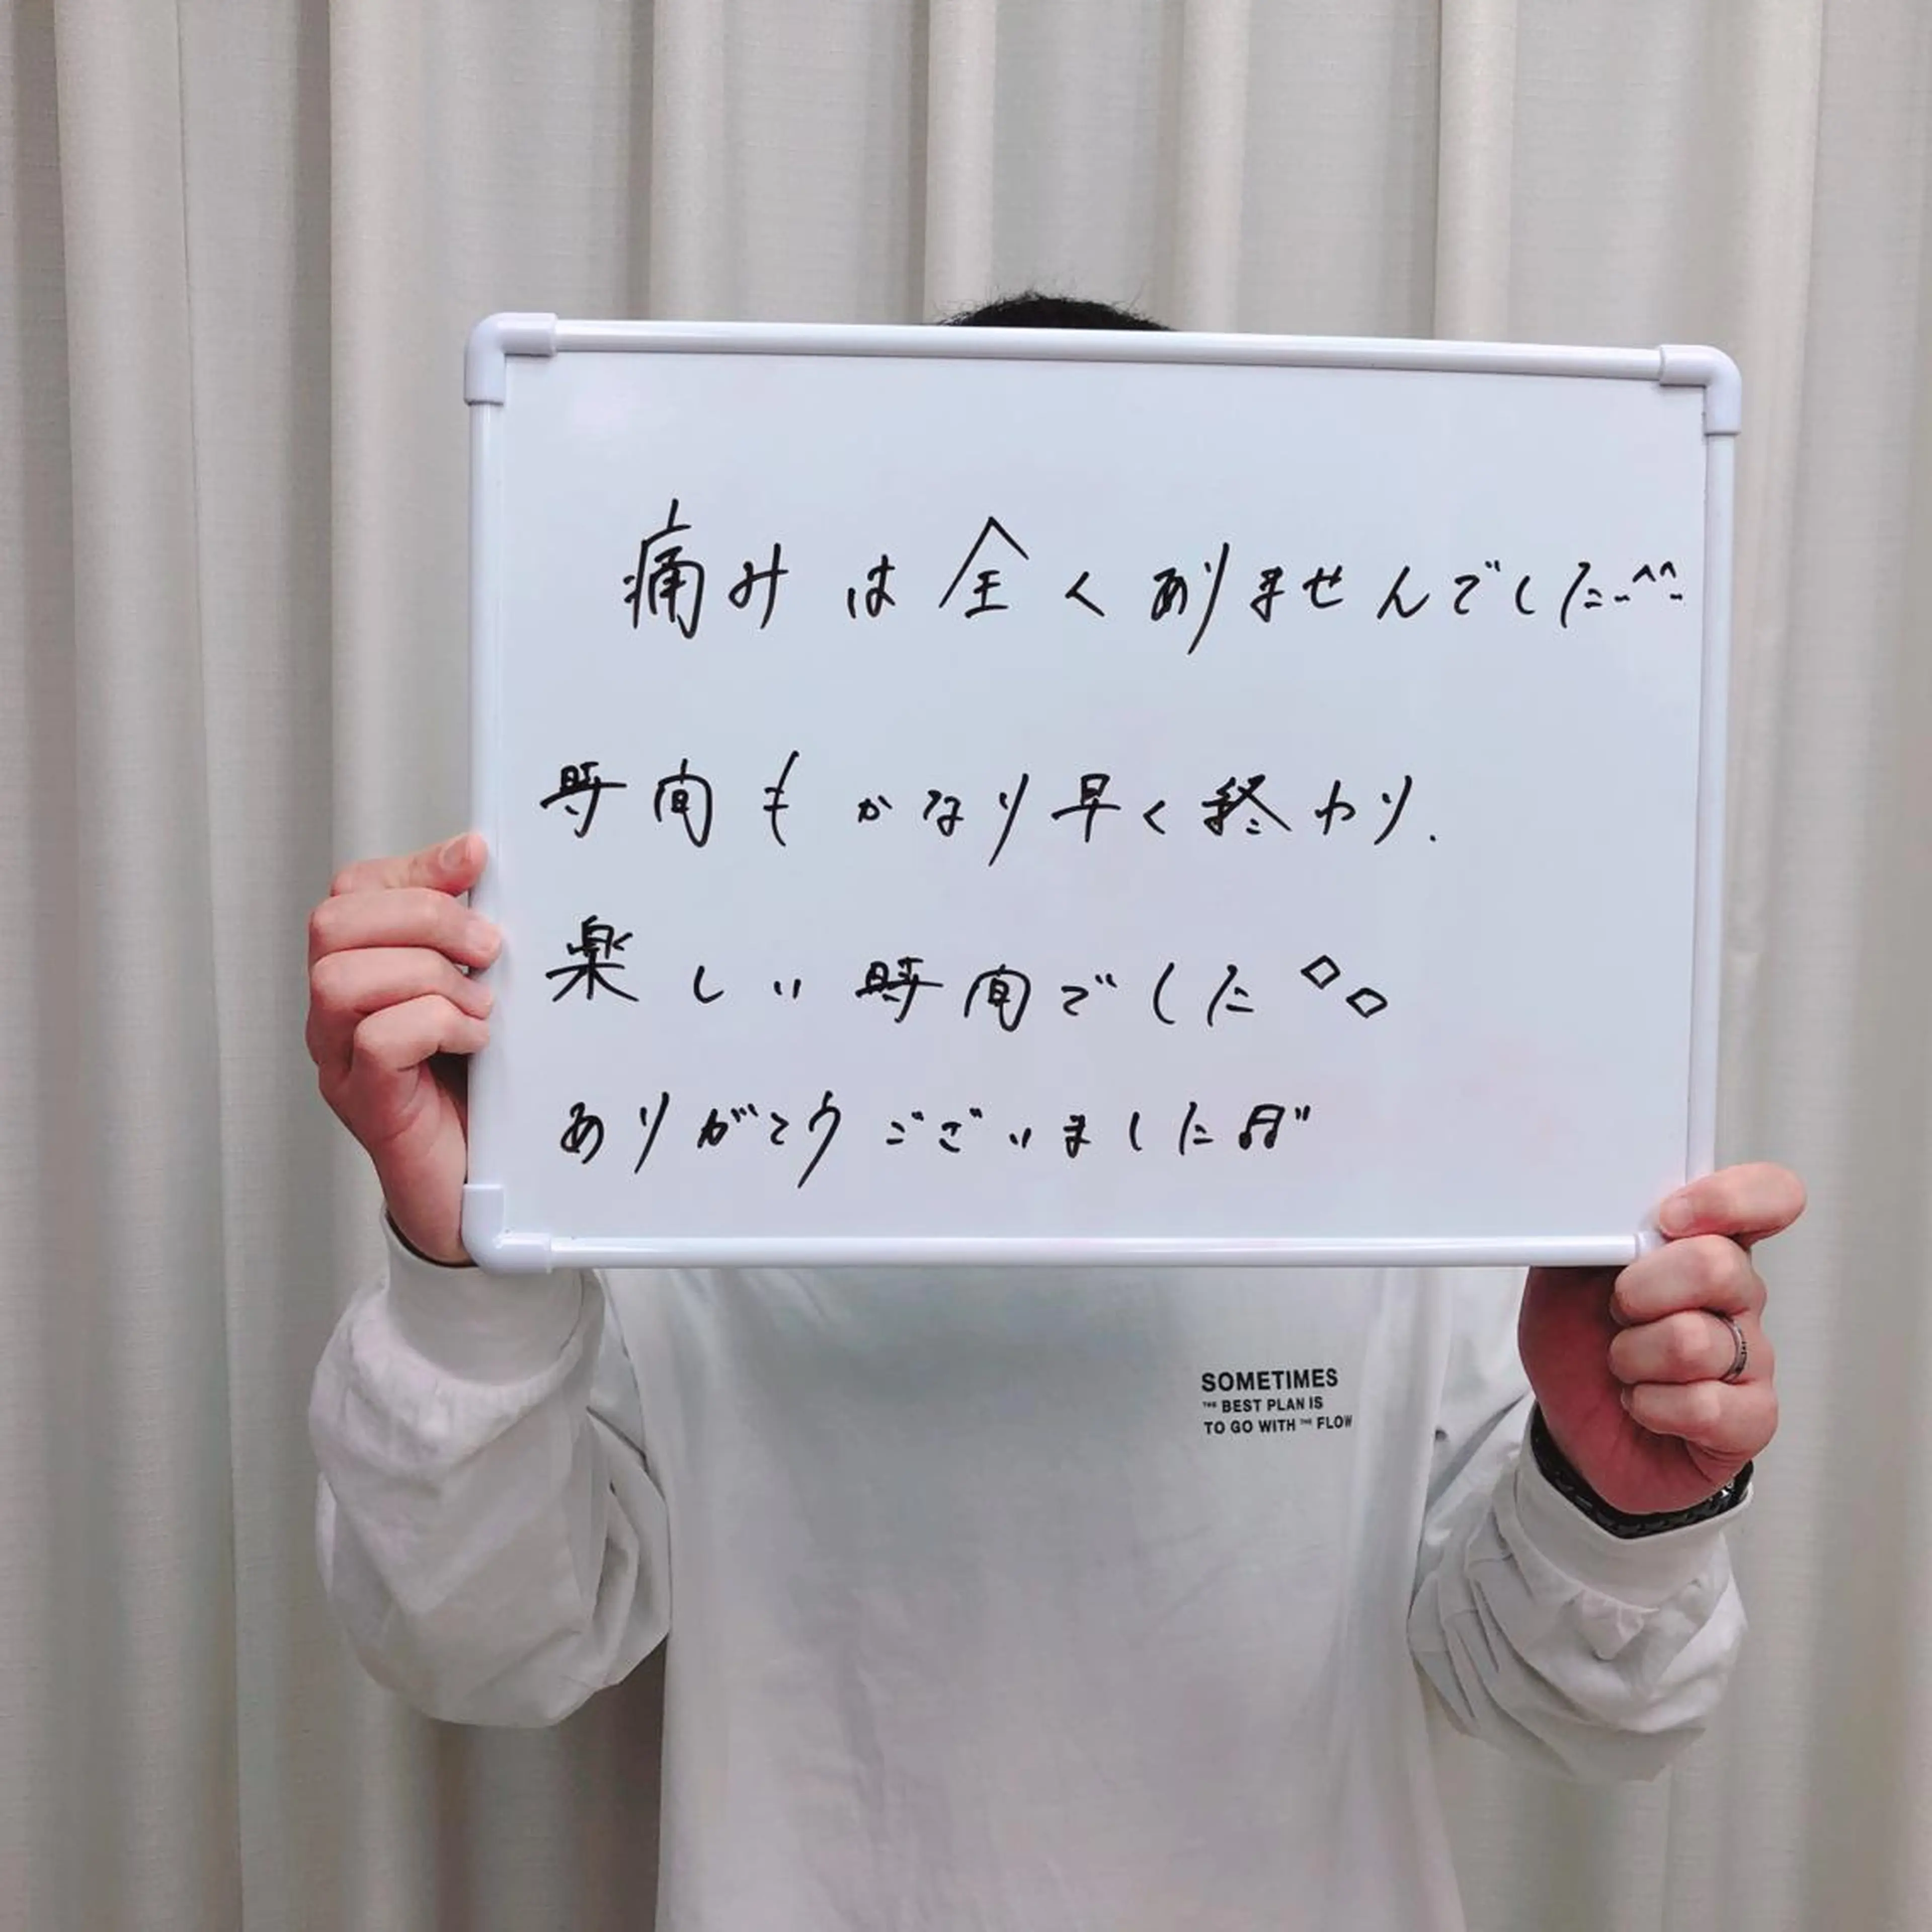 痛みは全くありませんでした^^
時間もかなり早く終わり.
楽しい時間でした◇◇
ありがとうございました♬"
SOMETIMES
THE BEST PLAN IS
TO GO WITH THE FLOW